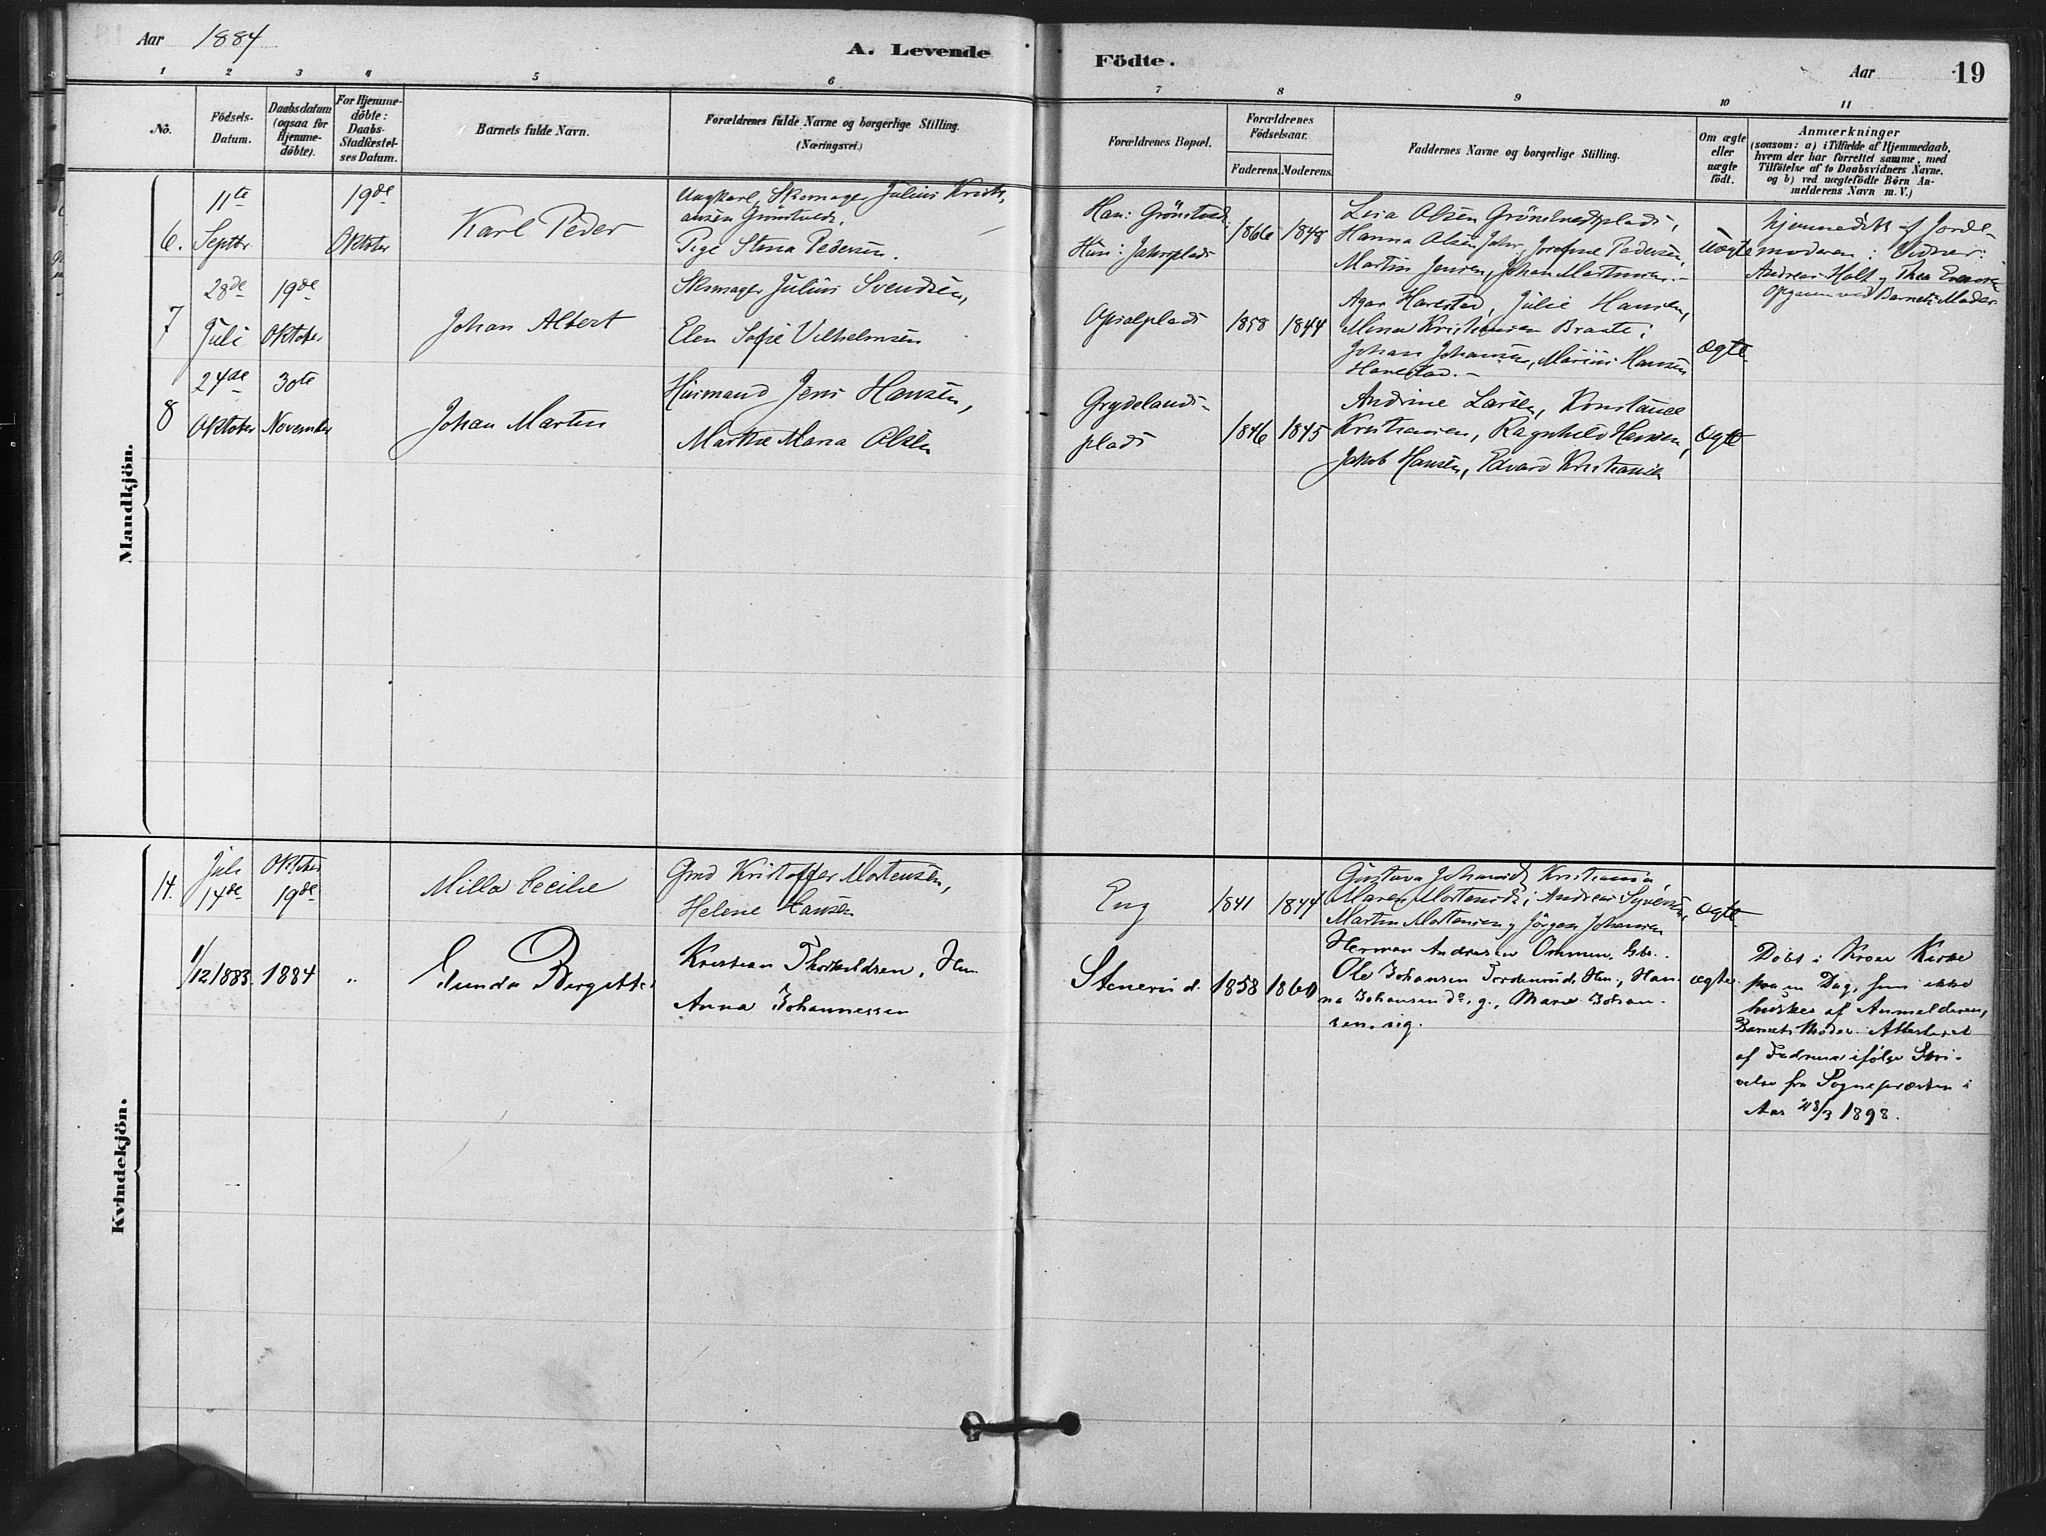 Aar 1884
A. Levende Födte.
Aar 19
1 2 3 4 5 6 7 8 9 10 11
No.
Födsels-Datum.
Daabsdatum (ogsaa for Hjemme-döbte).
For Hjemme-döbte: Daabs-Stadfæstel-ses Datum.
Barnets fulde Navn.
Forældrenes fulde Navne og borgerlige Stilling. (Næringsvei.)
Forældrenes Bopæl.
Forældrenes Födselsaar.
Faderens. Moderens.
Faddernes Navne og borgerlige Stilling.
Om ægte eller uægte födt.
Anmærkninger
(saasom: a) i Tilfælde af Hjemmedaab,
hvem der har forrettet samme, med
Tilföielse af to Daabsvidners Navne.
og b) ved uægtefödte Börn An-
melderens Navn m. V.)
Mandkjön.
6. 11te Septbr 19de Oktober
Karl Peder
Ungkarl, Skomager Julius Kristi-
ansen Grönstvedt,
Pige Stena Pedersen.
Han: Grönstvedt
Hun: Jahrplads
1866 1848
Lisa Olsen Grönstvedtplads,
Hanna Olsen Jahr, Josefine Pedersen,
Martin Jensen, Johan Martinsen.
uægte
hjemmedöbt af Jorde-
moderen; Vidner:
Andreas Holt og Thea Evensen
Opgaven ved Barnets Moder
7 28de Juli 19de Oktober
Johan Albert
Skomager Julius Svendsen,
Elen Sofie Vilhelmsen
Opsalplads
1858 1844
Agar Harestad, Julie Hansen,
Mina Kristiansen Braate;
Johan Johansen, Marius Hansen
Harestad.
ægte
8 24de Oktober 30te November
Johan Martin
Husmand Jens Hansen,
Marthe Maria Olsen
Grydelands-
plads
1846 1845
Andrine Larsen, Konstance
Kristiansen, Ragnhild Hansen,
Jakob Hansen, Edvard Kristiansen
ægte
Kvindekjön.
14. Juli 14de Oktober 19de
Milla Cecilie
Grmd Kristoffer Mortensen,
Helene Hansen
Eng
1841 1844
Gustava Johansdt Kristiania,
Maren Mortensdt; Andreas Syversen,
Martin Mortensen og Jörgen Johansen
ægte
1/12 1883. 1884 "
Gunda Birgitte
Kristian Thorkildsen, Hm.
Anna Johannessen
Stenerud.
1858 1860
Herman Andersen Ommen, Gbr.
Ole Johansen Tordenrud, Hm., Han-
na Johansen do., g., Marie Johan-
sen, ug.
ægte
Döbt i Kroer Kirke
paa en Dag, som ikke
huskes af Anmelderen,
Barnets Moder. Attesteret
af Fadrene ifölge Skri-
velse fra Sognepræsten i
Aas 28/3 1898.